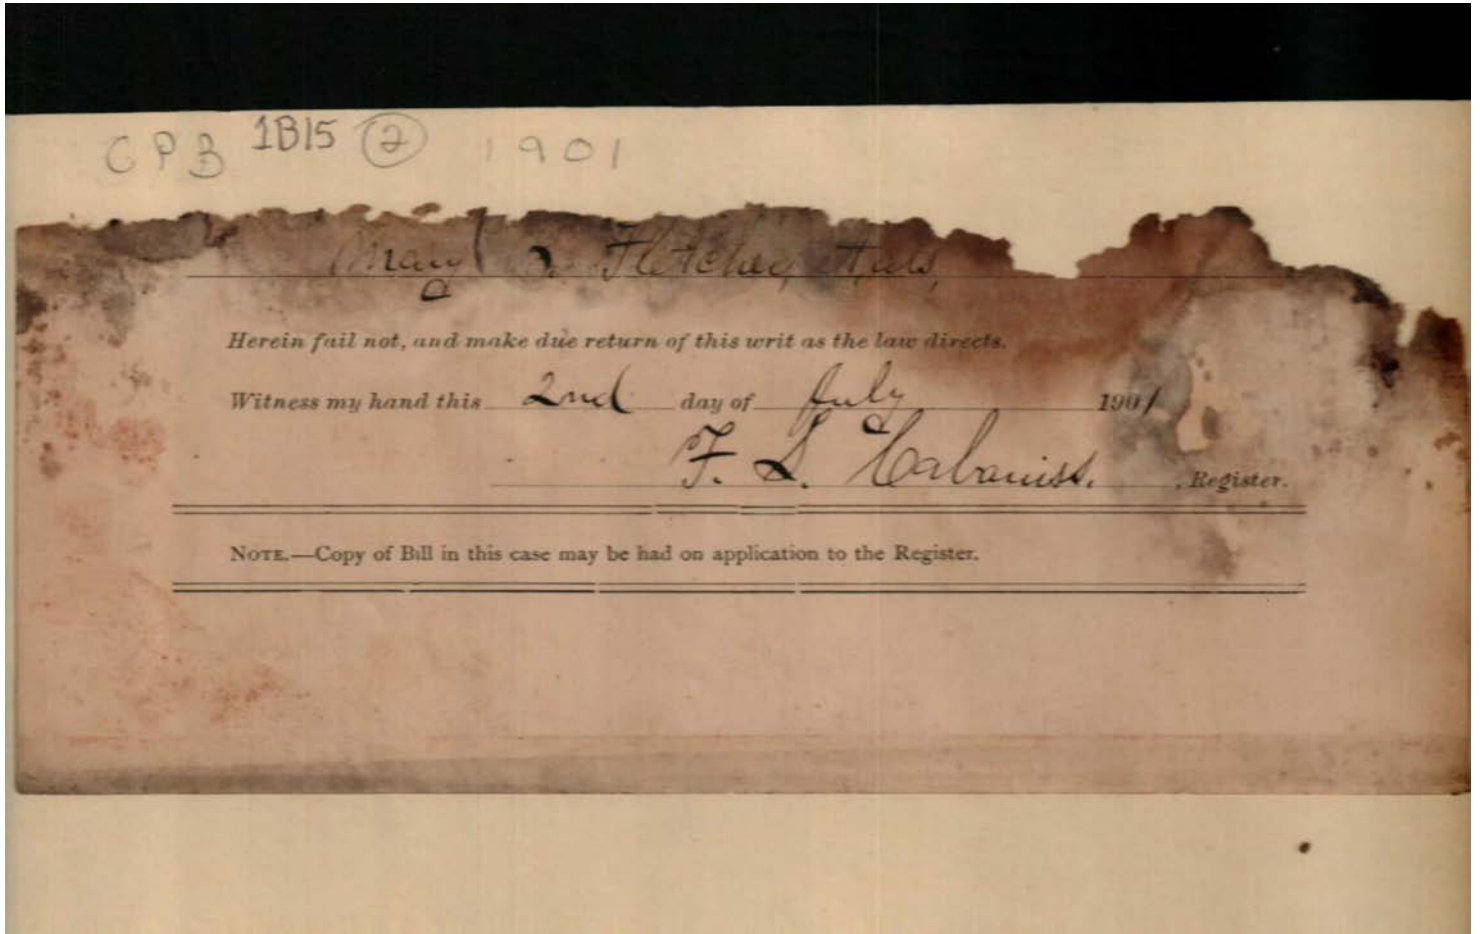 CPB 1B15 2 1901
Mary Fletcher
Herein fail not, and make due return of this writ as the law directs.
Witness my hand this 2nd day of July 1901
F. D. Cabaniss. , Register.
NOTE.—Copy of Bill in this case may be had on application to the Register.